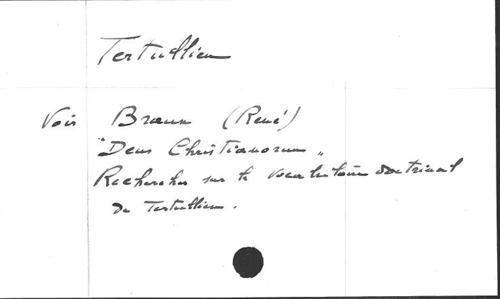 Tertullien
Voir Braun (René)
"Deus Christianorum"
Recherches sur le vocabulaire doctrinal
de Tertullien.